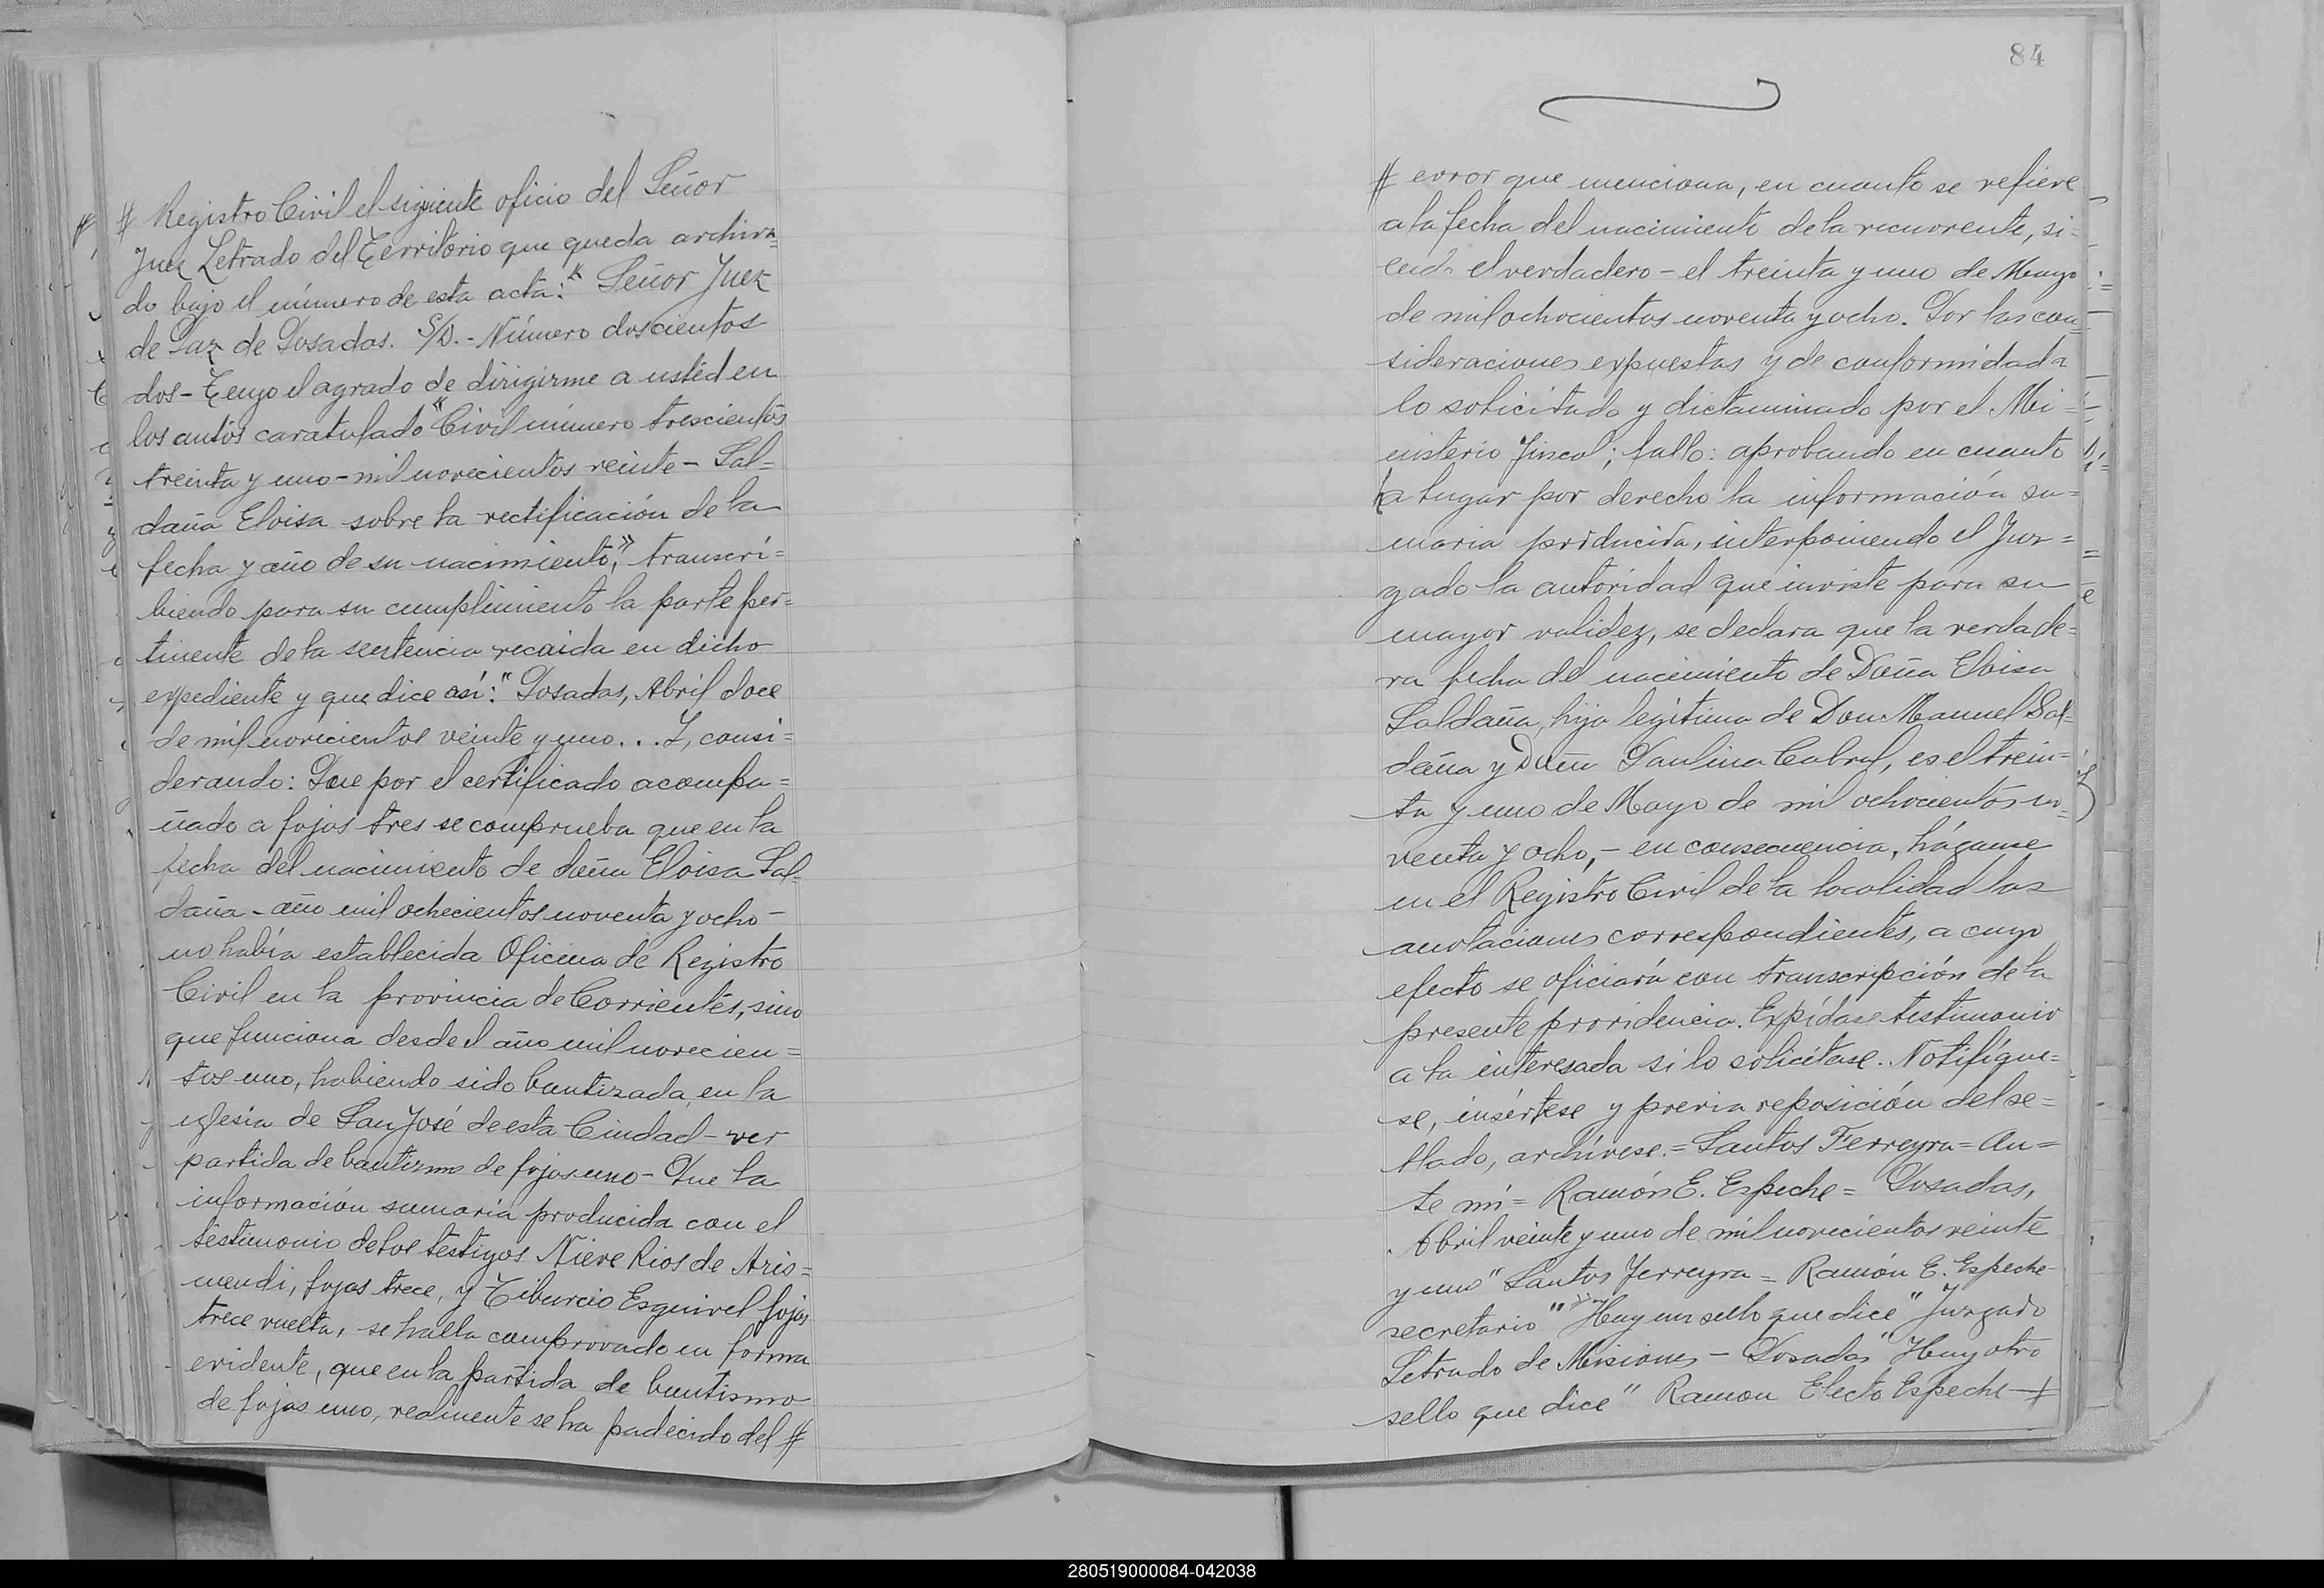 # Registro Civil el siguiente oficio del Señor
Juez Letrado del Territorio que queda archiva=
do bajo el número de esta acta: "Señor Juez
de Paz de Posadas. S/D.- Número doscientos
dos- Tengo el agrado de dirigirme a usted en
los autos caratulado "Civil número trescientos
treinta y uno-mil novecientos veinte- Sal=
daña Eloisa sobre la rectificación de la
fecha y año de su nacimiento," transcri=
biendo para su cumplimiento la parte per=
tinente de la sentencia recaida en dicho
expediente y que dice así: "Posadas, Abril doce
de mil novecientos veinte y uno... Y, consi=
derando: Que por el certificado acompa=
ñado a fojas tres se comprueba que en la
fecha del nacimiento de doña Eloisa Sal=
daña - año mil ochocientos noventa y ocho-
no había establecida Oficina de Registro
Civil en la provincia de Corrientes, sino
que funciona desde el año mil novecien=
tos uno, habiendo sido bautizada en la
iglesia de San José de esta Ciudad - ver
partida de bautismo de fojas uno - Que la
información sumaria producida con el
testimonio de los testigos Nieve Rios de Aris=
mendi, fojas trece, y Tiburcio Esquivel fojas
trece vuelta, se halla comprovado en forma
evidente, que en la partida de bautismo
de fojas uno, realmente se ha padecido del #
84
# error que menciona, en cuanto se refiere
a la fecha del nacimiento de la recurrente, si=
endo el verdadero - el treinta y uno de Mayo
de mil ochocientos noventa y ocho. Por las con=
sideraciones expuestas y de conformidad a
lo solicitado y dictaminado por el Mi=
nisterio Fiscal; fallo: aprobando en cuanto
ha lugar por derecho la información su=
maria producida, interponiendo el Juz=
gado la autoridad que inviste para su
mayor validez, se declara que la verdade=
ra fecha del nacimiento de Doña Eloisa
Saldaña, hija legítima de Don Manuel Sal=
daña y Doña Paulina Cabral, es el trein=
ta y uno de Mayo de mil ochocientos no=
venta y ocho,- en consecuencia, háganse
en el Registro Civil de la localidad las
anotaciones correspondientes, a cuyo
efecto se oficiará con transcripción de la
presente providencia. Expídase testimonio
a la interesada si lo solicitase. Notifíque=
se, insértese y previa reposición del se=
llado, archívese.= Santos Ferreyra= An=
te mí= Ramón E. Espeche= Posadas,
Abril veinte y uno de mil novecientos veinte
y uno" Santos Ferreyra = Ramón E. Espeche-
secretario "" Hay un sello que dice" Juzgado
Letrado de Misiones - Posadas" Hay otro
sello que dice" Ramon Electo Espeche #
280519000084-042038